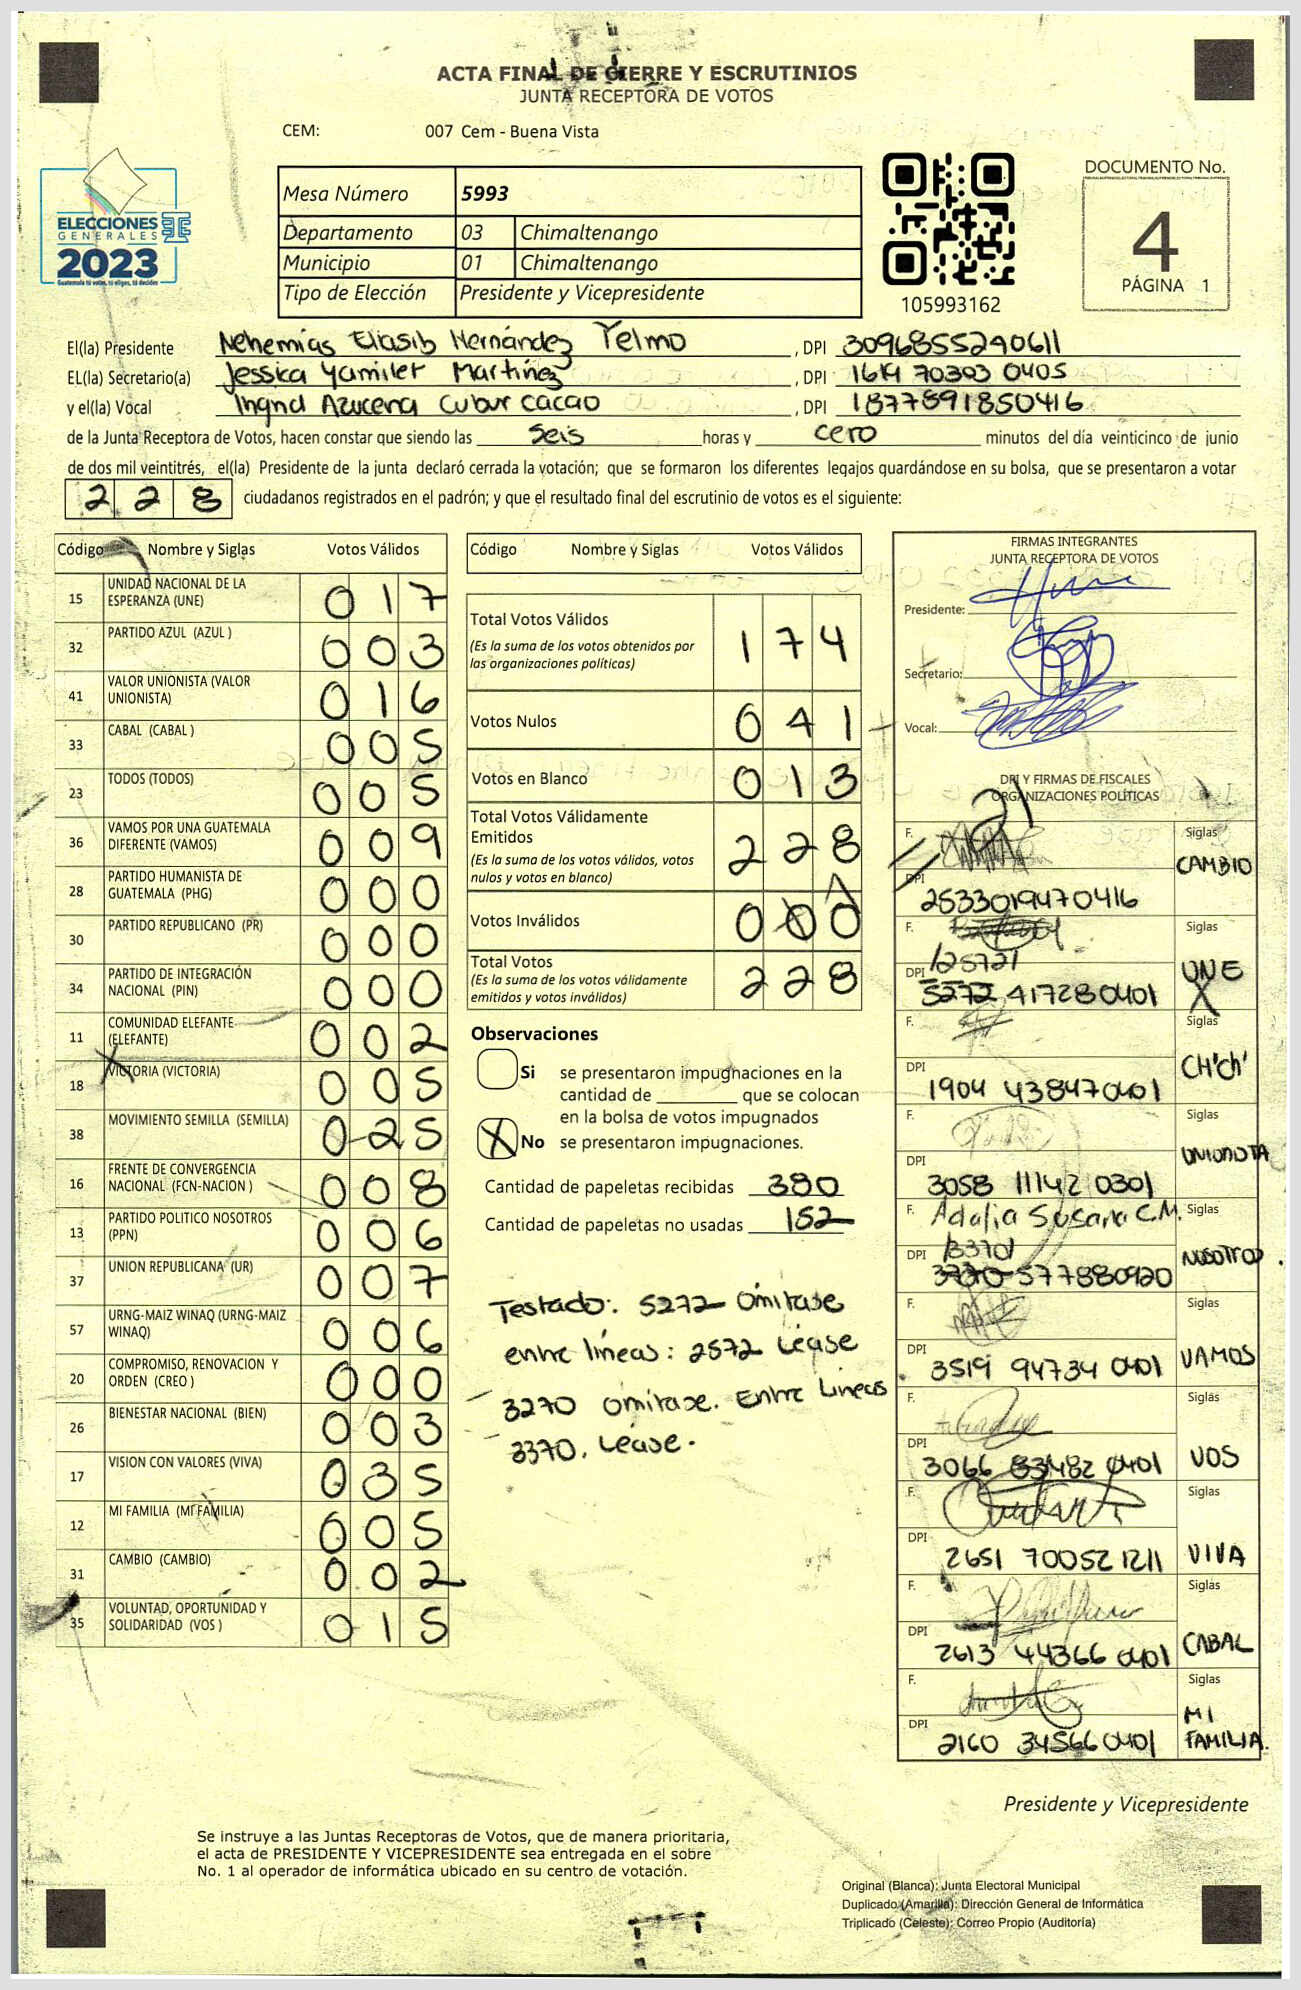 ACTA FINAL DE CIERRE Y ESCRUTINIOS
JUNTA RECEPTORA DE VOTOS
CEM: 007 Cem - Buena Vista
ELECCIONES
GENERALES
2023
Guatemala tú votas, tú eliges, tú decides
Mesa Número 5993
Departamento 03 Chimaltenango
Municipio 01 Chimaltenango
Tipo de Elección Presidente y Vicepresidente
105993162
DOCUMENTO No.
4
PÁGINA 1
El(la) Presidente Nehemías Eliasib Hernández Yelmo, DPI 3096855240611
EL(la) Secretario(a) Jessica Yamilet Martínez, DPI 1619 70303 0405
y el(la) Vocal Ingrid Azucena Cubur cacao, DPI 1877891850416
de la Junta Receptora de Votos, hacen constar que siendo las seis horas y cero minutos del día veinticinco de junio
de dos mil veintitrés, el(la) Presidente de la junta declaró cerrada la votación; que se formaron los diferentes legajos guardándose en su bolsa, que se presentaron a votar
228 ciudadanos registrados en el padrón; y que el resultado final del escrutinio de votos es el siguiente:
Código Nombre y Siglas Votos Válidos
15 UNIDAD NACIONAL DE LA ESPERANZA (UNE) 017
32 PARTIDO AZUL (AZUL ) 003
41 VALOR UNIONISTA (VALOR UNIONISTA) 016
33 CABAL (CABAL ) 005
23 TODOS (TODOS) 005
36 VAMOS POR UNA GUATEMALA DIFERENTE (VAMOS) 009
28 PARTIDO HUMANISTA DE GUATEMALA (PHG) 000
30 PARTIDO REPUBLICANO (PR) 000
34 PARTIDO DE INTEGRACIÓN NACIONAL (PIN) 000
11 COMUNIDAD ELEFANTE (ELEFANTE) 002
18 VICTORIA (VICTORIA) 005
38 MOVIMIENTO SEMILLA (SEMILLA) 025
16 FRENTE DE CONVERGENCIA NACIONAL (FCN-NACION ) 008
13 PARTIDO POLITICO NOSOTROS (PPN) 006
37 UNION REPUBLICANA (UR) 007
57 URNG-MAIZ WINAQ (URNG-MAIZ WINAQ) 006
20 COMPROMISO, RENOVACION Y ORDEN (CREO ) 000
26 BIENESTAR NACIONAL (BIEN) 003
17 VISION CON VALORES (VIVA) 035
12 MI FAMILIA (MI FAMILIA) 005
31 CAMBIO (CAMBIO) 002
35 VOLUNTAD, OPORTUNIDAD Y SOLIDARIDAD (VOS ) 015
Código Nombre y Siglas Votos Válidos
Total Votos Válidos 174
(Es la suma de los votos obtenidos por
las organizaciones políticas)
Votos Nulos 041
Votos en Blanco 013
Total Votos Válidamente
Emitidos 228
(Es la suma de los votos válidos, votos
nulos y votos en blanco)
Votos Inválidos 000
Total Votos 228
(Es la suma de los votos válidamente
emitidos y votos inválidos)
Observaciones
Si se presentaron impugnaciones en la
cantidad de ________ que se colocan
en la bolsa de votos impugnados
X No se presentaron impugnaciones.
Cantidad de papeletas recibidas 380
Cantidad de papeletas no usadas 152
Testado: 5272 omitase
entre líneas: 2572 Léase
3270 omitase. Entre Lineas
3370. Léase.
FIRMAS INTEGRANTES
JUNTA RECEPTORA DE VOTOS
Presidente:
Secretario:
Vocal:
DPI Y FIRMAS DE FISCALES
ORGANIZACIONES POLÍTICAS
F. Siglas
CAMBIO
DPI 2533019470416
F. Siglas
UNE
DPI /25721
5272 417280401
F. Siglas
CH'Ch'
DPI 1904 438470401
F. Siglas
UNIONISTA
DPI 3058 11142 0301
F. Adalia Susana C.M. Siglas
NOSOTROS
DPI /3370/
577880920
F. Siglas
VAMOS
DPI 3519 94734 0401
F. Siglas
VOS
DPI 3066 83482 0401
F. Siglas
VIVA
DPI 2651 700521211
F. Siglas
CABAL
DPI 2613 44366 0401
F. Siglas
MI
FAMILIA.
DPI 2160 345660401
Presidente y Vicepresidente
Se instruye a las Juntas Receptoras de Votos, que de manera prioritaria,
el acta de PRESIDENTE Y VICEPRESIDENTE sea entregada en el sobre
No. 1 al operador de informática ubicado en su centro de votación.
Original (Blanca): Junta Electoral Municipal
Duplicado (Amarilla): Dirección General de Informática
Triplicado (Celeste): Correo Propio (Auditoría)